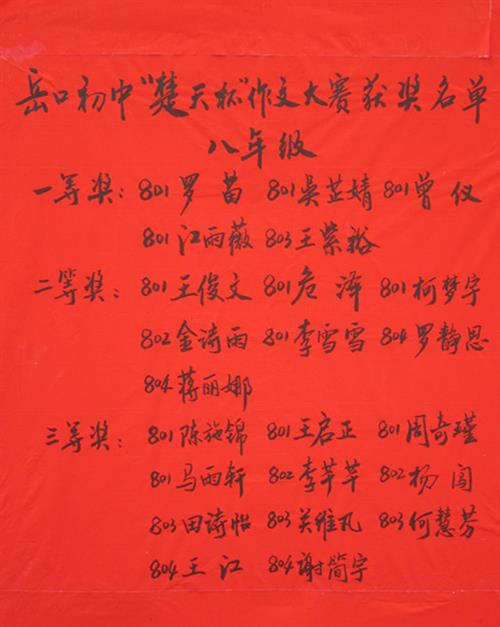 岳口初中"楚天杯"作文大赛获奖名单
八年级
一等奖：801罗苗 801吴芷婧 801曾仪
801江雨薇 803王紫裕
二等奖：801王俊文 801危泽 801柯梦宇
802金诗雨 801李雪雪 804罗静恩
804蒋丽娜
三等奖：801陈施锦 801王启正 801周奇瑾
801马雨轩 802李芊芊 802杨闯
803田诗怡 803关维凡 803何慧芬
804王江 804谢简宇